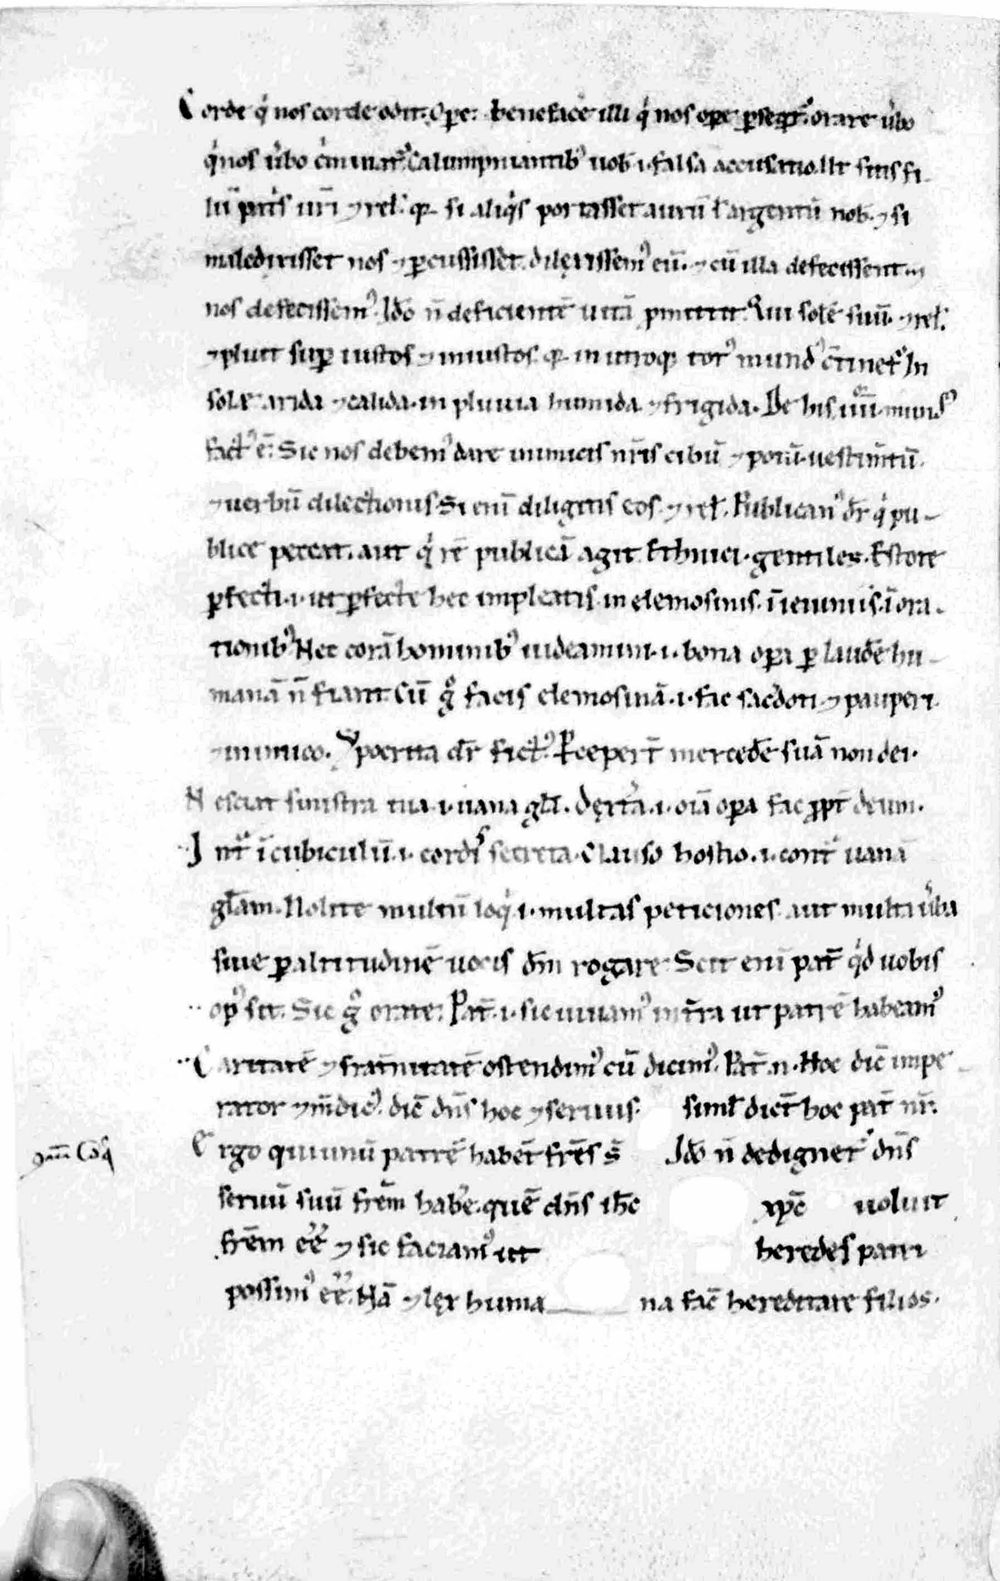 Corde q̍ nos corde odit. Oꝑe. benefac̄e illi q̍ nos oꝑe ꝑseqt᷒. orare ūbo
q̍ nos ūbo c̍minat᷒. Calumpniantib᷒ uob̄ .i. falsa accusatio. Ut sitis fi-
lii pat̍s ur̄i ⁊ rel̄. q̄ si aliq̍s portasset aurū ł argentū nob̄. ⁊ si
maledixisset nos ⁊ ꝑcussisset. dilęxissem᷒ eū. ⁊ cū illa defecissent.
nos defecissem᷒. Ido̅ n̄ deficientē uitā ꝓmittit. Qui solē suū. ⁊ rel̄.
⁊ pluit suꝑ iustos ⁊ iniustos. q̄ in utroq̄ tot᷒ mund᷒ c̄tinet᷒. In
sole arida ⁊ calida. in pluuia humida ⁊ frigida. De his .iiii. mund᷒
fact᷒ ē. Sic nos debem᷒ dare inimicis nr̄is cibū ⁊ potū. uestim̄tū.
⁊ uerbū dilectionis. Si eni̅ diligitis eos. ⁊ rel̄. Publican᷒ dr̄ q̍ pu-
blice peccat. aut q̍ rē publicā agit. Ethnici. gentiles. Estote
ꝑfecti .i. ut ꝑfecte hec impleatis. in elemosinis. ī ieiuniis. ī ora-
tionib᷒. Nec corā hominib᷒ uideamini .i. bona oꝑa ꝑ laudē hu-
manā n̄ fiant. Cū g̊ facis elemosinā .i. fac sac̍doti ⁊ pauperi
⁊ inimico. Ypocrita dr̄ fict᷒. Receper̄t mercedē suā non dei.
Nesciat sinistra tua .i. uana gl̄a. Dęxt̍a .i. oīa oꝑa fac ꝓpt̄ deum.
Int᷒ ī cubiculū .i. cordis secreta. Clauso hostio .i. cont᷒ uanā
gl̄am. Nolite multū loq̍ .i. multas peticiones. aut multa ūba
siue ꝑ altitudinē uocis dm̄ rogare. Scit eni̅ pat̄ q̍d uobis
op᷒ sit. Sic g̊ orate. Pat̄ .i. sic uiuam᷒ in t̄ra ut patrē habeam᷒
Caritatē ⁊ frat̄nitatē ostendim᷒ cū dicim᷒. Pat̄ .n. Hoc dic̄ impe-
rator ⁊ m̄dic᷒. dic̄ dn̄s hoc ⁊ seruus. simil̄ dict̄ hoc pat̄ nr̄.
Ergo qui unū patrē habēt frēs s̄ Ido̅ n̄ dedignet᷒ dn̄s
seruū suū frēm hab̄e. quē dn̄s ih̄c xp̄c uoluit
frēm ēē ⁊ sic faciam᷒ ut heredes patri
possim᷒ ēē. Nā ⁊ lęx huma na fac̄ hereditare filios.